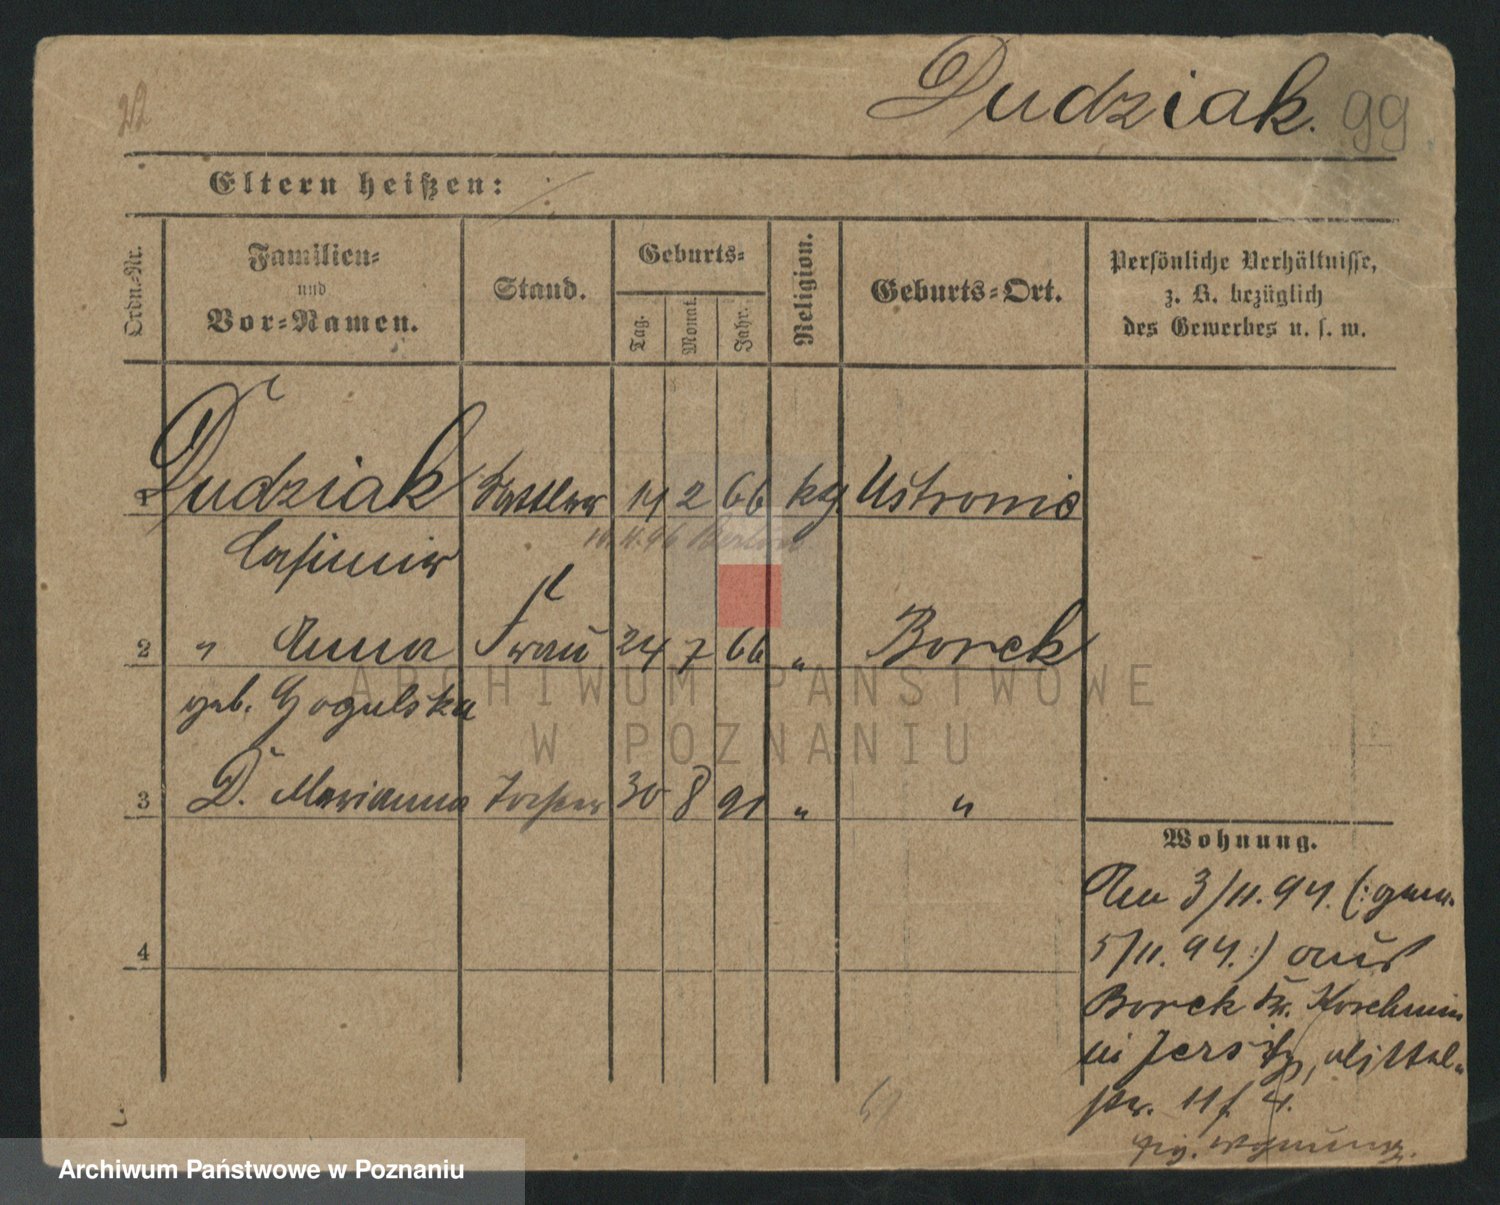 22
Dudziak. 99
Eltern heißen:
Ordn.-Nr.
Familien-
und
Vor-Namen.
Stand.
Geburts-
Tag.
Monat.
Jahr.
Religion.
Geburts-Ort.
Persönliche Verhältnisse,
z. B. bezüglich
des Gewerbes u. s. w.
1 Dudziak Sattler 14 2 66 ktg Ustronie
Casimir
96 Berlin
2 " Anna Frau 24 7 66 " Borek
geb. Gogulska
3 D. Marianna Tochter 30 8 91 " "
4
Wohnung.
Am 3/11. 94. (: gem.
5/11. 94. :) aus
Borek Kr. Koschmin
in Jersitz, Mittel-
str. 11 f 4.
ARCHIWUM PAŃSTWOWE
W POZNANIU
Archiwum Państwowe w Poznaniu